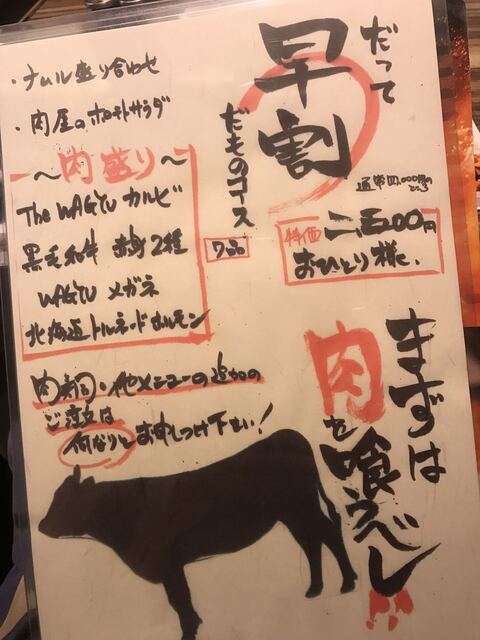 だって
早割
だものコース
7品
通常四、000円の
ところ
特価 二、五00円
おひとり様に、
・ナムル盛り合わせ
・肉屋のポテトサラダ
〜肉盛り〜
The WAGYU カルビ
黒毛和牛 赤身2種
WAGYU メガネ
北海道トルネードホルモン
肉寿司・他メニューの追加の
ご注文は
何なりとお申しつけ下さい！
まずは
肉を喰うべし!!